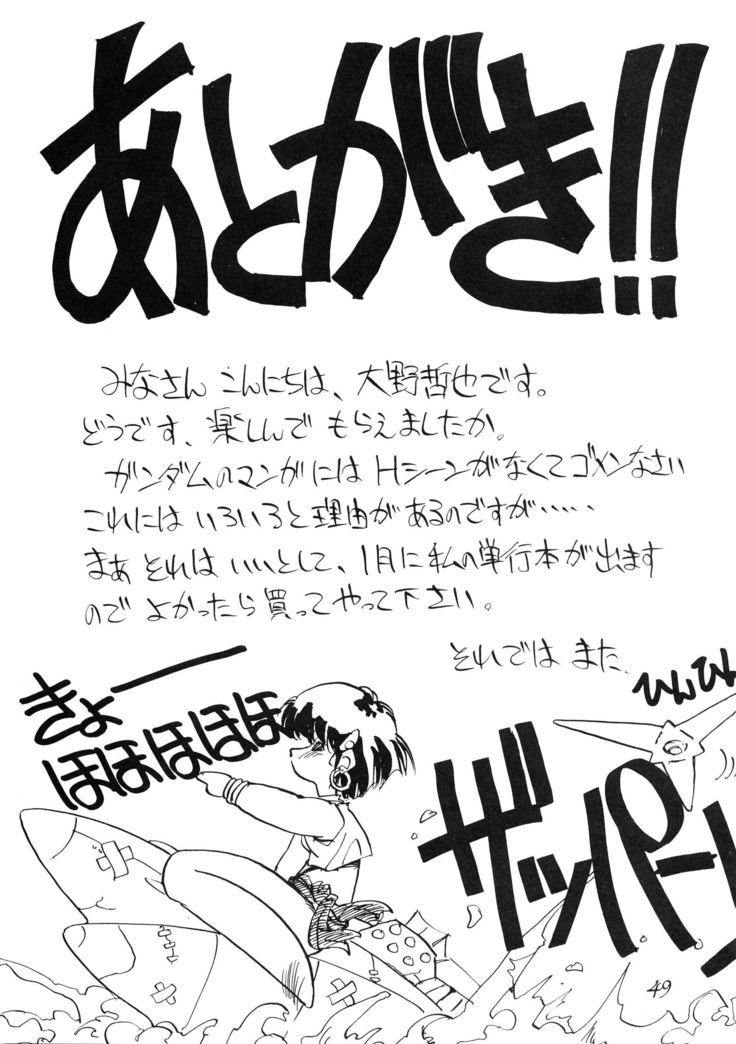 あとがき!!
みなさん こんにちは、大野哲也です。
どうです、楽しんで もらえましたか。
ガンダムのマンガには Hシーンがなくてゴメンなさい
これには いろいろと理由があるのですが……
まぁ それは いいとして、1月に私の単行本が出ます
ので よかったら買ってやって下さい。
それでは また、
きょーー
ほほほほほ
ひんひん
ザッパーン
49